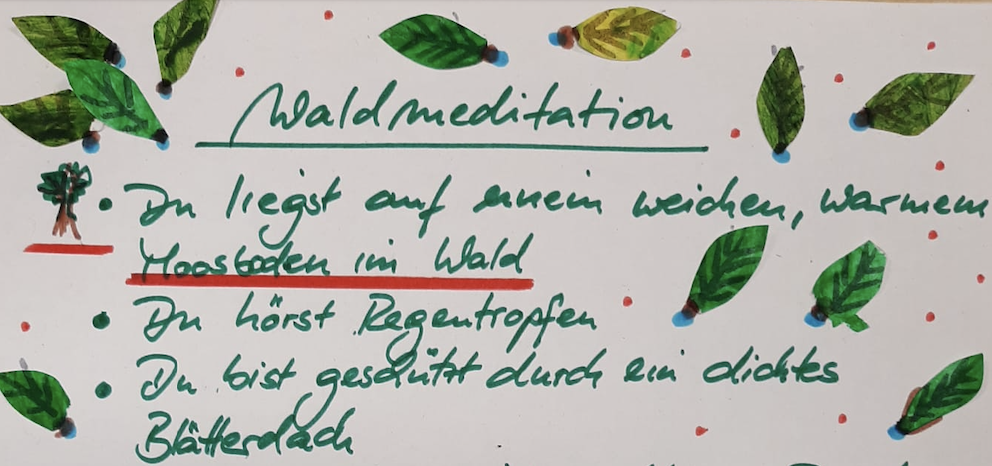 Waldmeditation
• Du liegst auf einem weichen, warmem
Moosboden im Wald
• Du hörst Regentropfen
• Du bist geschützt durch ein dichtes
Blätterdach